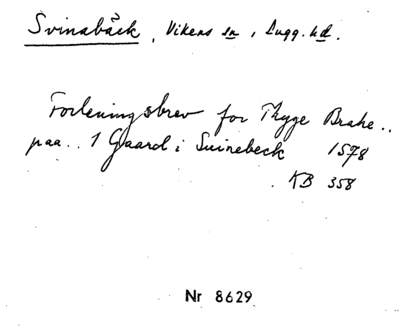 Svinabäck, Vikens sn, Lugg. hd.
Forleningsbrev for Thyge Brahe..
paa.. 1 Gaard i Suinebeck 1578
KB 358
Nr 8629